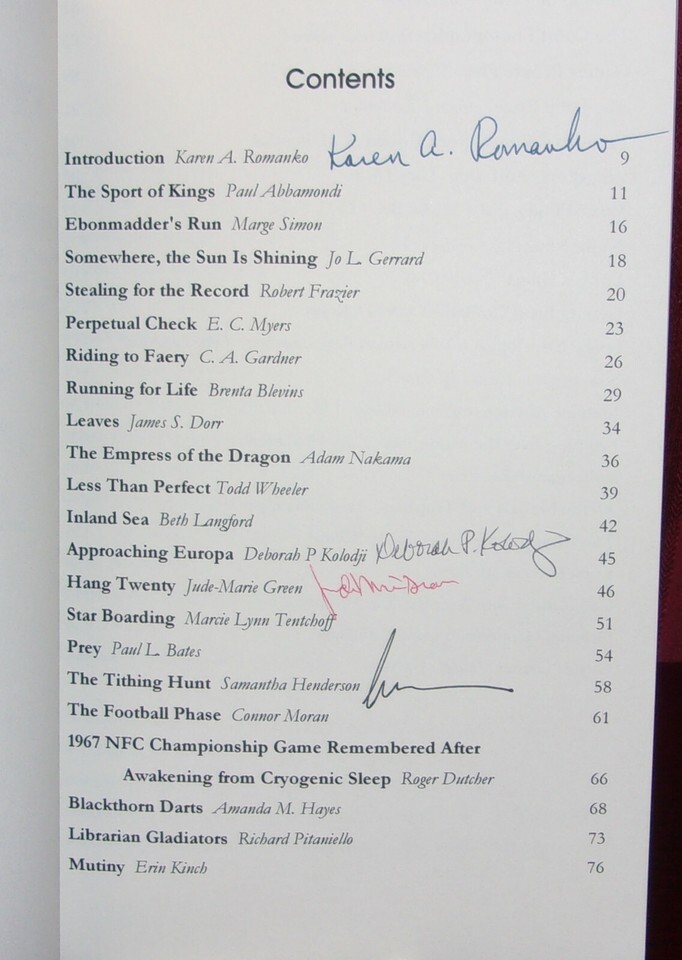 Contents
Introduction Karen A. Romanko Karen A. Romanko 9
The Sport of Kings Paul Abbamondi 11
Ebonmadder's Run Marge Simon 16
Somewhere, the Sun Is Shining Jo L. Gerrard 18
Stealing for the Record Robert Frazier 20
Perpetual Check E. C. Myers 23
Riding to Faery C. A. Gardner 26
Running for Life Brenta Blevins 29
Leaves James S. Dorr 34
The Empress of the Dragon Adam Nakama 36
Less Than Perfect Todd Wheeler 39
Inland Sea Beth Langford 42
Approaching Europa Deborah P Kolodji Deborah P. Kolodji 45
Hang Twenty Jude-Marie Green 46
Star Boarding Marcie Lynn Tentchoff 51
Prey Paul L. Bates 54
The Tithing Hunt Samantha Henderson 58
The Football Phase Connor Moran 61
1967 NFC Championship Game Remembered After
Awakening from Cryogenic Sleep Roger Dutcher 66
Blackthorn Darts Amanda M. Hayes 68
Librarian Gladiators Richard Pitaniello 73
Mutiny Erin Kinch 76